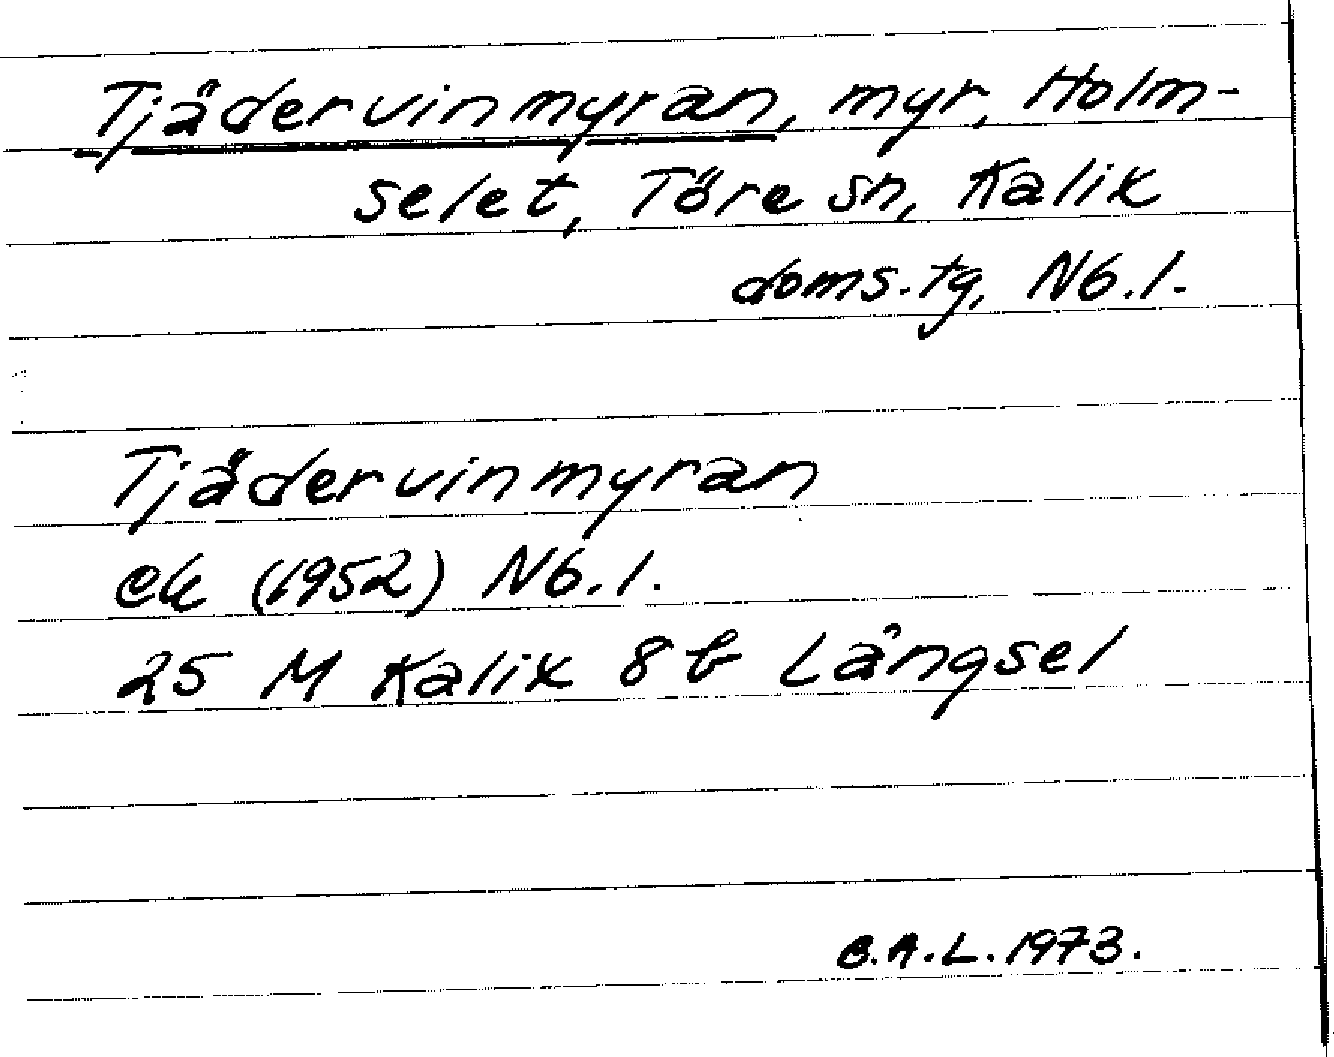 Tjädervinmyran, myr, Holm-
selet, Töre sn, Kalix
doms.tg, Nb.l.
Tjädervinmyran
ek (1952) Nb.l.
25 M Kalix 8 b Långsel
B.A.L. 1973.